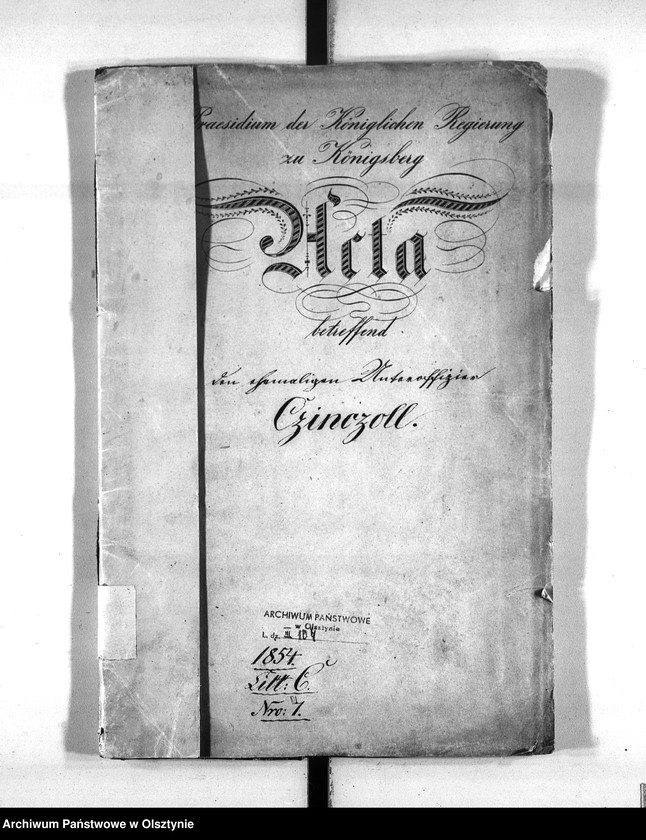 Praesidium der Königlichen Regierung
zu Königsberg
Acta
betreffend
den ehemaligen Unteroffizier
Czinczoll.
ARCHIWUM PAŃSTWOWE
w Olsztynie
L. dz.
1854.
Litt: C.
Nro: 7.
Archiwum Państwowe w Olsztynie